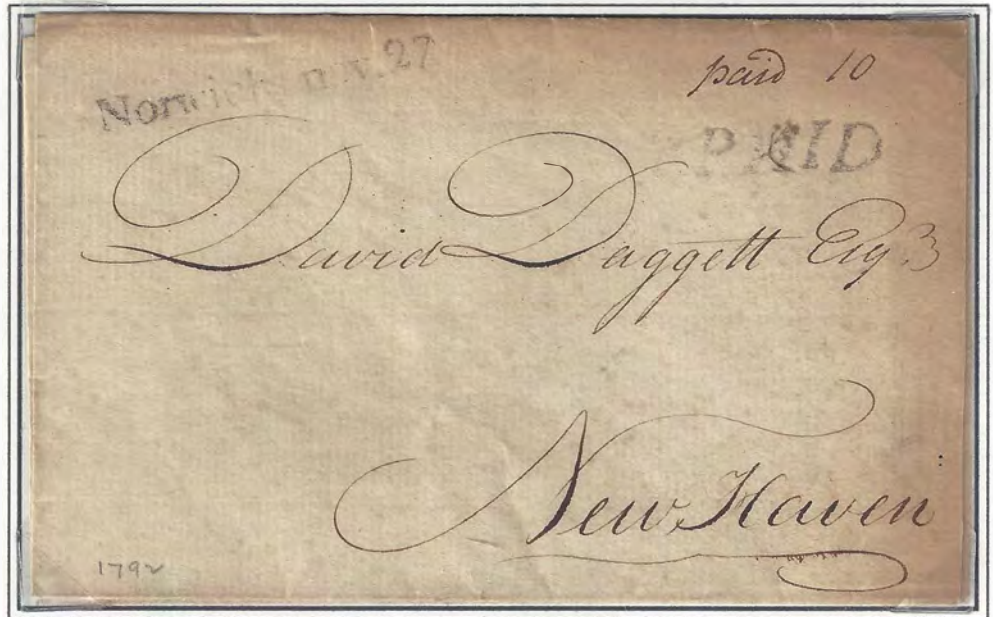 Norwich n.v. 27
paid 10
PAID
David Daggett Esq.r
New Haven
1792